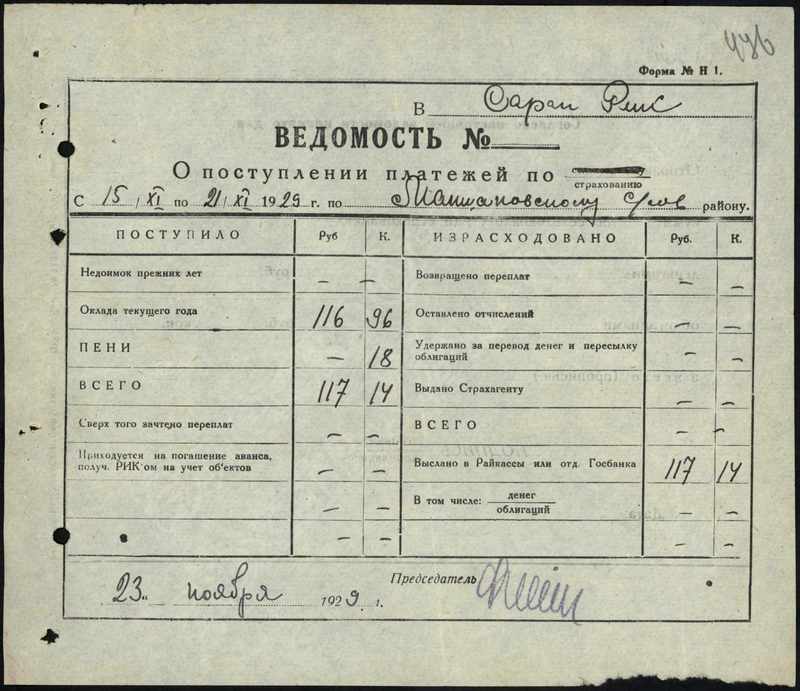 436
Форма № Н 1.
В Сарап Рик
ВЕДОМОСТЬ №
О поступлении платежей по
страхованию
С 15/XI по 21/XI 1929 г. по району.
ПОСТУПИЛО Руб К. ИЗРАСХОДОВАНО Руб. К.
Недоимок прежних лет — — Возвращено переплат — —
Оклада текущего года 116 96 Оставлено отчислений — —
ПЕНИ — 18 Удержано за перевод денег и пересылку
облигаций — —
ВСЕГО 117 14 Выдано Страхагенту — —
Сверх того зачтено переплат — — ВСЕГО — —
Приходуется на погашение аванса,
получ. РИК'ом на учет об'ектов — — Выслано в Райкассы или отд. Госбанка 117 14
— — В том числе: денег — —
облигаций
— — — —
23 ноября 1929 г. Председатель